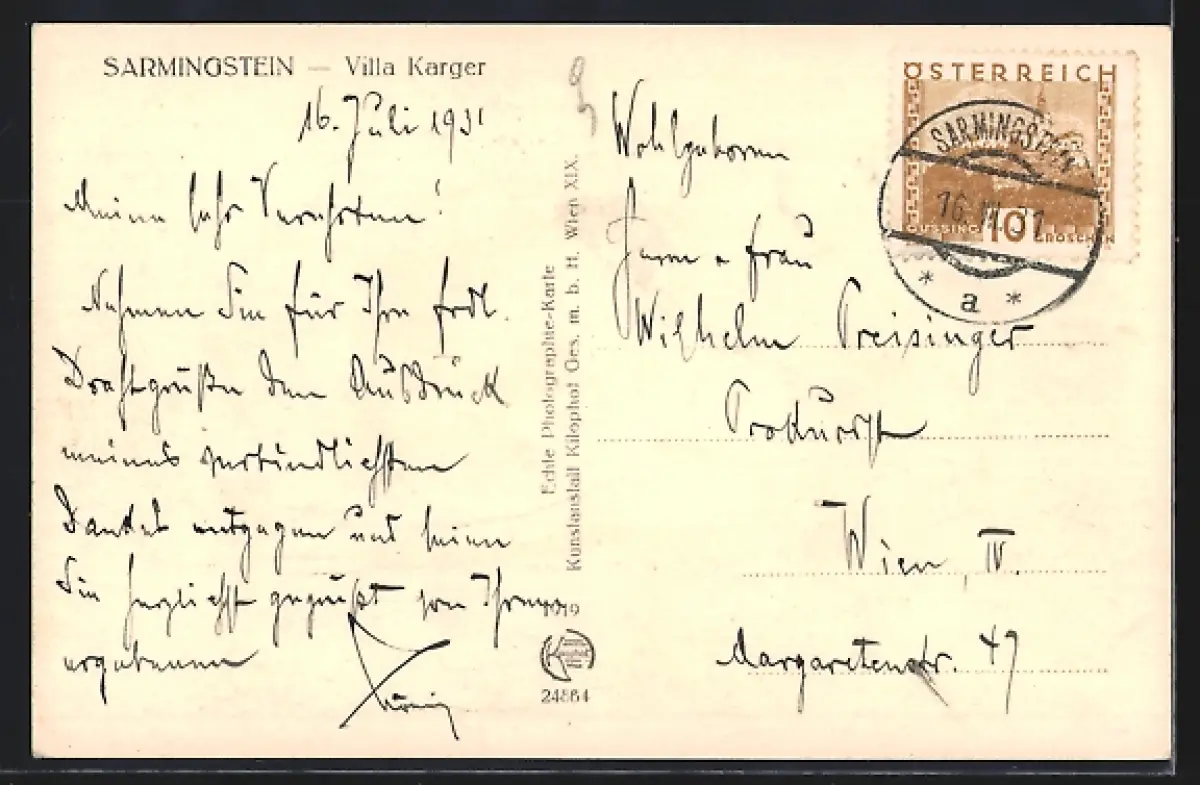 SARMINGSTEIN — Villa Karger
16. Juli 1931
Meine sehr Verehrten!
Nehmen Sie für Ihre frdl.
Drahtgrüße den Ausdruck
meines verbindlichsten
Dankes entgegen und seien
Sie herzlichst gegrüßt von Ihrem
ergebenen
Echte Photographie-Karte
Kunstanstalt Kilophot Ges. m. b. H. Wien XIX.
1019
Kilophot
24864
ÖSTERREICH
GÜSSING 10 GROSCHEN
SARMINGSTEIN
16. VII. 31
* a *
Wohlgeboren
Herrn u Frau
Wilhelm Preisinger
Prokurist
Wien, IV.
Margaretenstr. 49